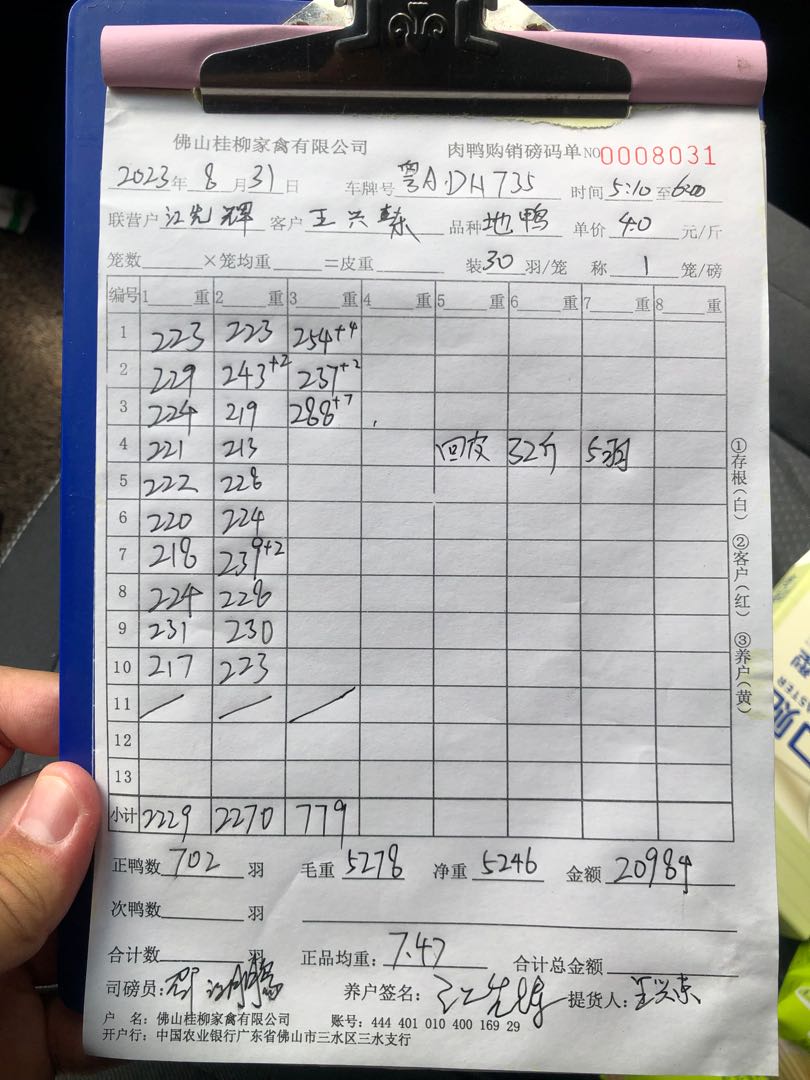 佛山桂柳家禽有限公司 肉鸭购销磅码单 NO 0008031
2023年 8月31日 车牌号 粤A·DH735 时间 5:10至6:00
联营户 江先辉 客户 王兴东 品种 地鸭 单价 4.0 元/斤
笼数 ×笼均重 =皮重 装30羽/笼 称 1 笼/磅
编号 1 重 2 重 3 重 4 重 5 重 6 重 7 重 8 重
1 223 223 254+4
2 229 243+2 237+2
3 224 219 288+7
4 221 213 回皮 32斤 5羽
5 222 228
6 220 224
7 218 239+2
8 224 228
9 231 230
10 217 223
11
12
13
小计 2229 2270 779
正鸭数 702 羽 毛重 5278 净重 5246 金额 20984
次鸭数 羽
合计数 羽 正品均重: 7.47 合计总金额
司磅员: 养户签名: 提货人: 王兴东
户 名: 佛山桂柳家禽有限公司 账号: 444 401 010 400 169 29
开户行: 中国农业银行广东省佛山市三水区三水支行
①存根(白) ②客户(红) ③养户(黄)